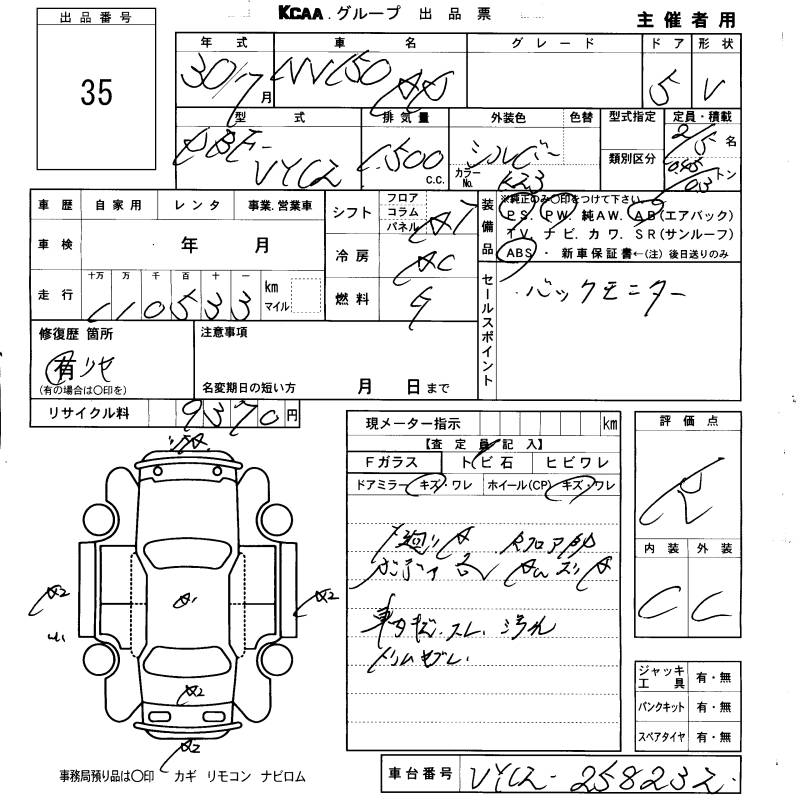 KCAA.グループ 出品票
主催者用
出品番号
35
年式 車名 グレード ドア 形状
30/7月 NV150 AD 5 V
型式 排気量 外装色 色替 型式指定 定員・積載
DBF-VY12 1,500 C.C. シルバー 類別区分 2/5名
カラーNo. K23 0.45/0.3トン
車歴 自家用 レンタ 事業.営業車
シフト フロア コラム パネル AT
装備品 ※純正のみ〇印をつけて下さい。
PS. PW. 純AW. AB(エアバック)
TV. ナビ. カワ. SR(サンルーフ)
ABS ・ 新車保証書←(注) 後日送りのみ
車検 年 月
冷房 AC
走行 十万 万 千 百 十 一 km マイル
110533
燃料 G
セールスポイント
・バックモニター
修復歴 箇所
有
(有の場合は〇印を)
注意事項
名変期日の短い方 月 日まで
リサイクル料 9370円
現メーター指示 km
【査定員記入】
Fガラス トビ石 ヒビワレ
ドアミラー キズ・ワレ ホイール(CP) キズ・ワレ
下廻りA
スレ. 汚れ
評価点
R
内装 外装
C C
A2
A1
A2
A2
A2
ジャッキ工具 有・無
パンクキット 有・無
スペアタイヤ 有・無
事務局預り品は〇印 カギ リモコン ナビロム
車台番号 VY12-258232